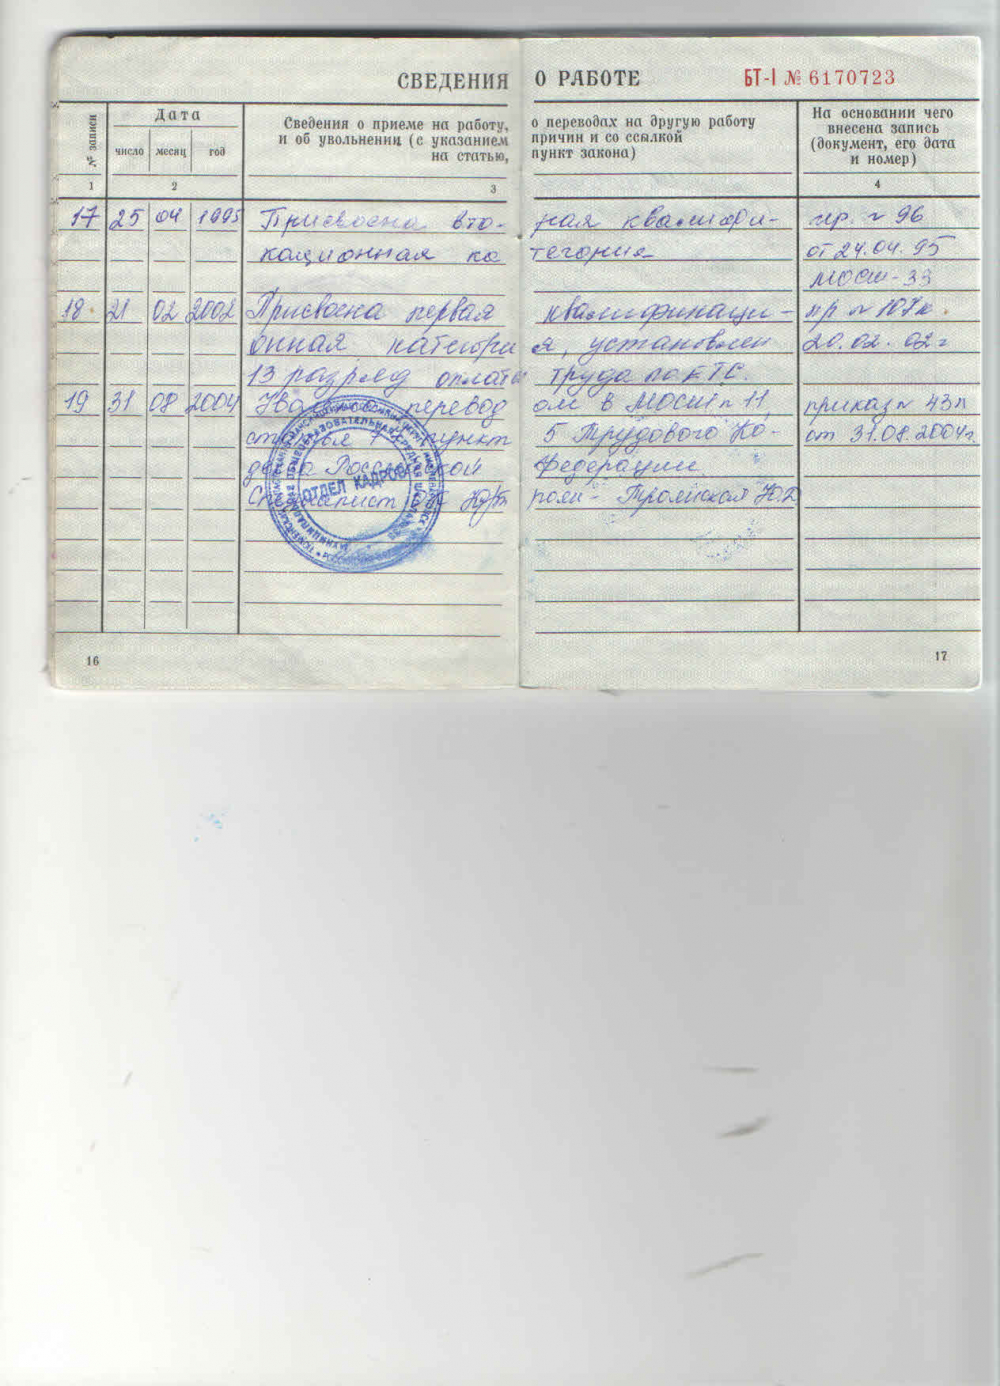 СВЕДЕНИЯ О РАБОТЕ БТ-I № 6170723
№ записи
Дата
число месяц год
Сведения о приеме на работу, о переводах на другую работу
и об увольнении (с указанием причин и со ссылкой
на статью, пункт закона)
На основании чего
внесена запись
(документ, его дата
и номер)
1 2 3 4
17 25 04 1995 Присвоена вто- рая квалифи- пр. № 96
кационная ка тегория от 24.04.95
МОСШ-33
18 21 02 2002 Присвоена первая квалификаци- пр № 107к
онная категори я, установлен 20.02.02г
13 разряд оплаты труда по ЕТС.
19 31 08 2004 перевод ом в МОСШ № 11, приказ № 43л
статья 77 пункт 5 Трудового Ко- от 31.08.2004г.
декса Российской Федерации.
Специалист ОК Троянская Ю.Д
ОТДЕЛ КАДРОВ
16 17